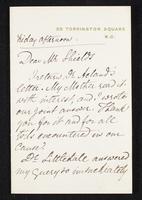 30 TORRINGTON SQUARE
W.C.
Friday afternoon.
Dear Mr Shields
I return Dr Acland's
letter. My Mother read it
with interest, and I wrote
our joint answer. Thank
you for it and for all
toils encountered in our
cause!
Dr. Littledale answered
my query so immediately